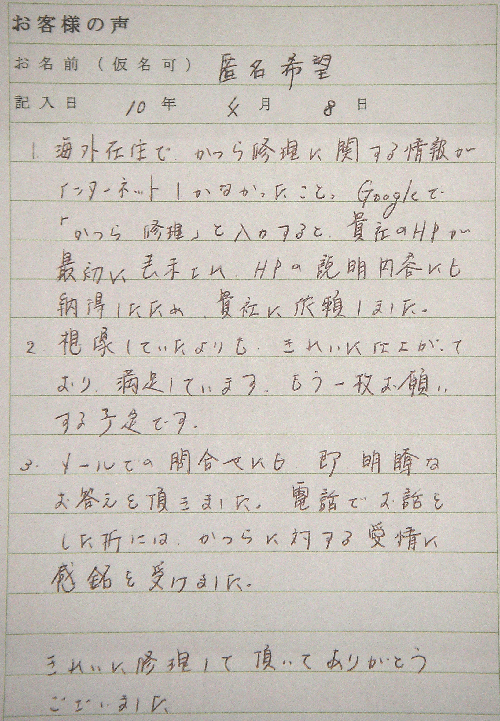 お客様の声
お名前（仮名可） 匿名希望
記入日 10年 4月 8日
1. 海外在住で、かつら修理に関する情報が
インターネットしかなかったこと。Googleで
「かつら 修理」と入力すると、貴社のHPが
最初に表示され、HPの説明内容にも
納得したため、貴社に依頼しました。
2. 想像していたよりも、きれいに仕上がって
おり、満足しています。もう一枚お願い
する予定です。
3. メールでの問合せにも 即 明瞭な
お答えを頂きました。電話でお話を
した所には、かつらに対する愛情に
感銘を受けました。
きれいに修理して頂いてありがとう
ございました